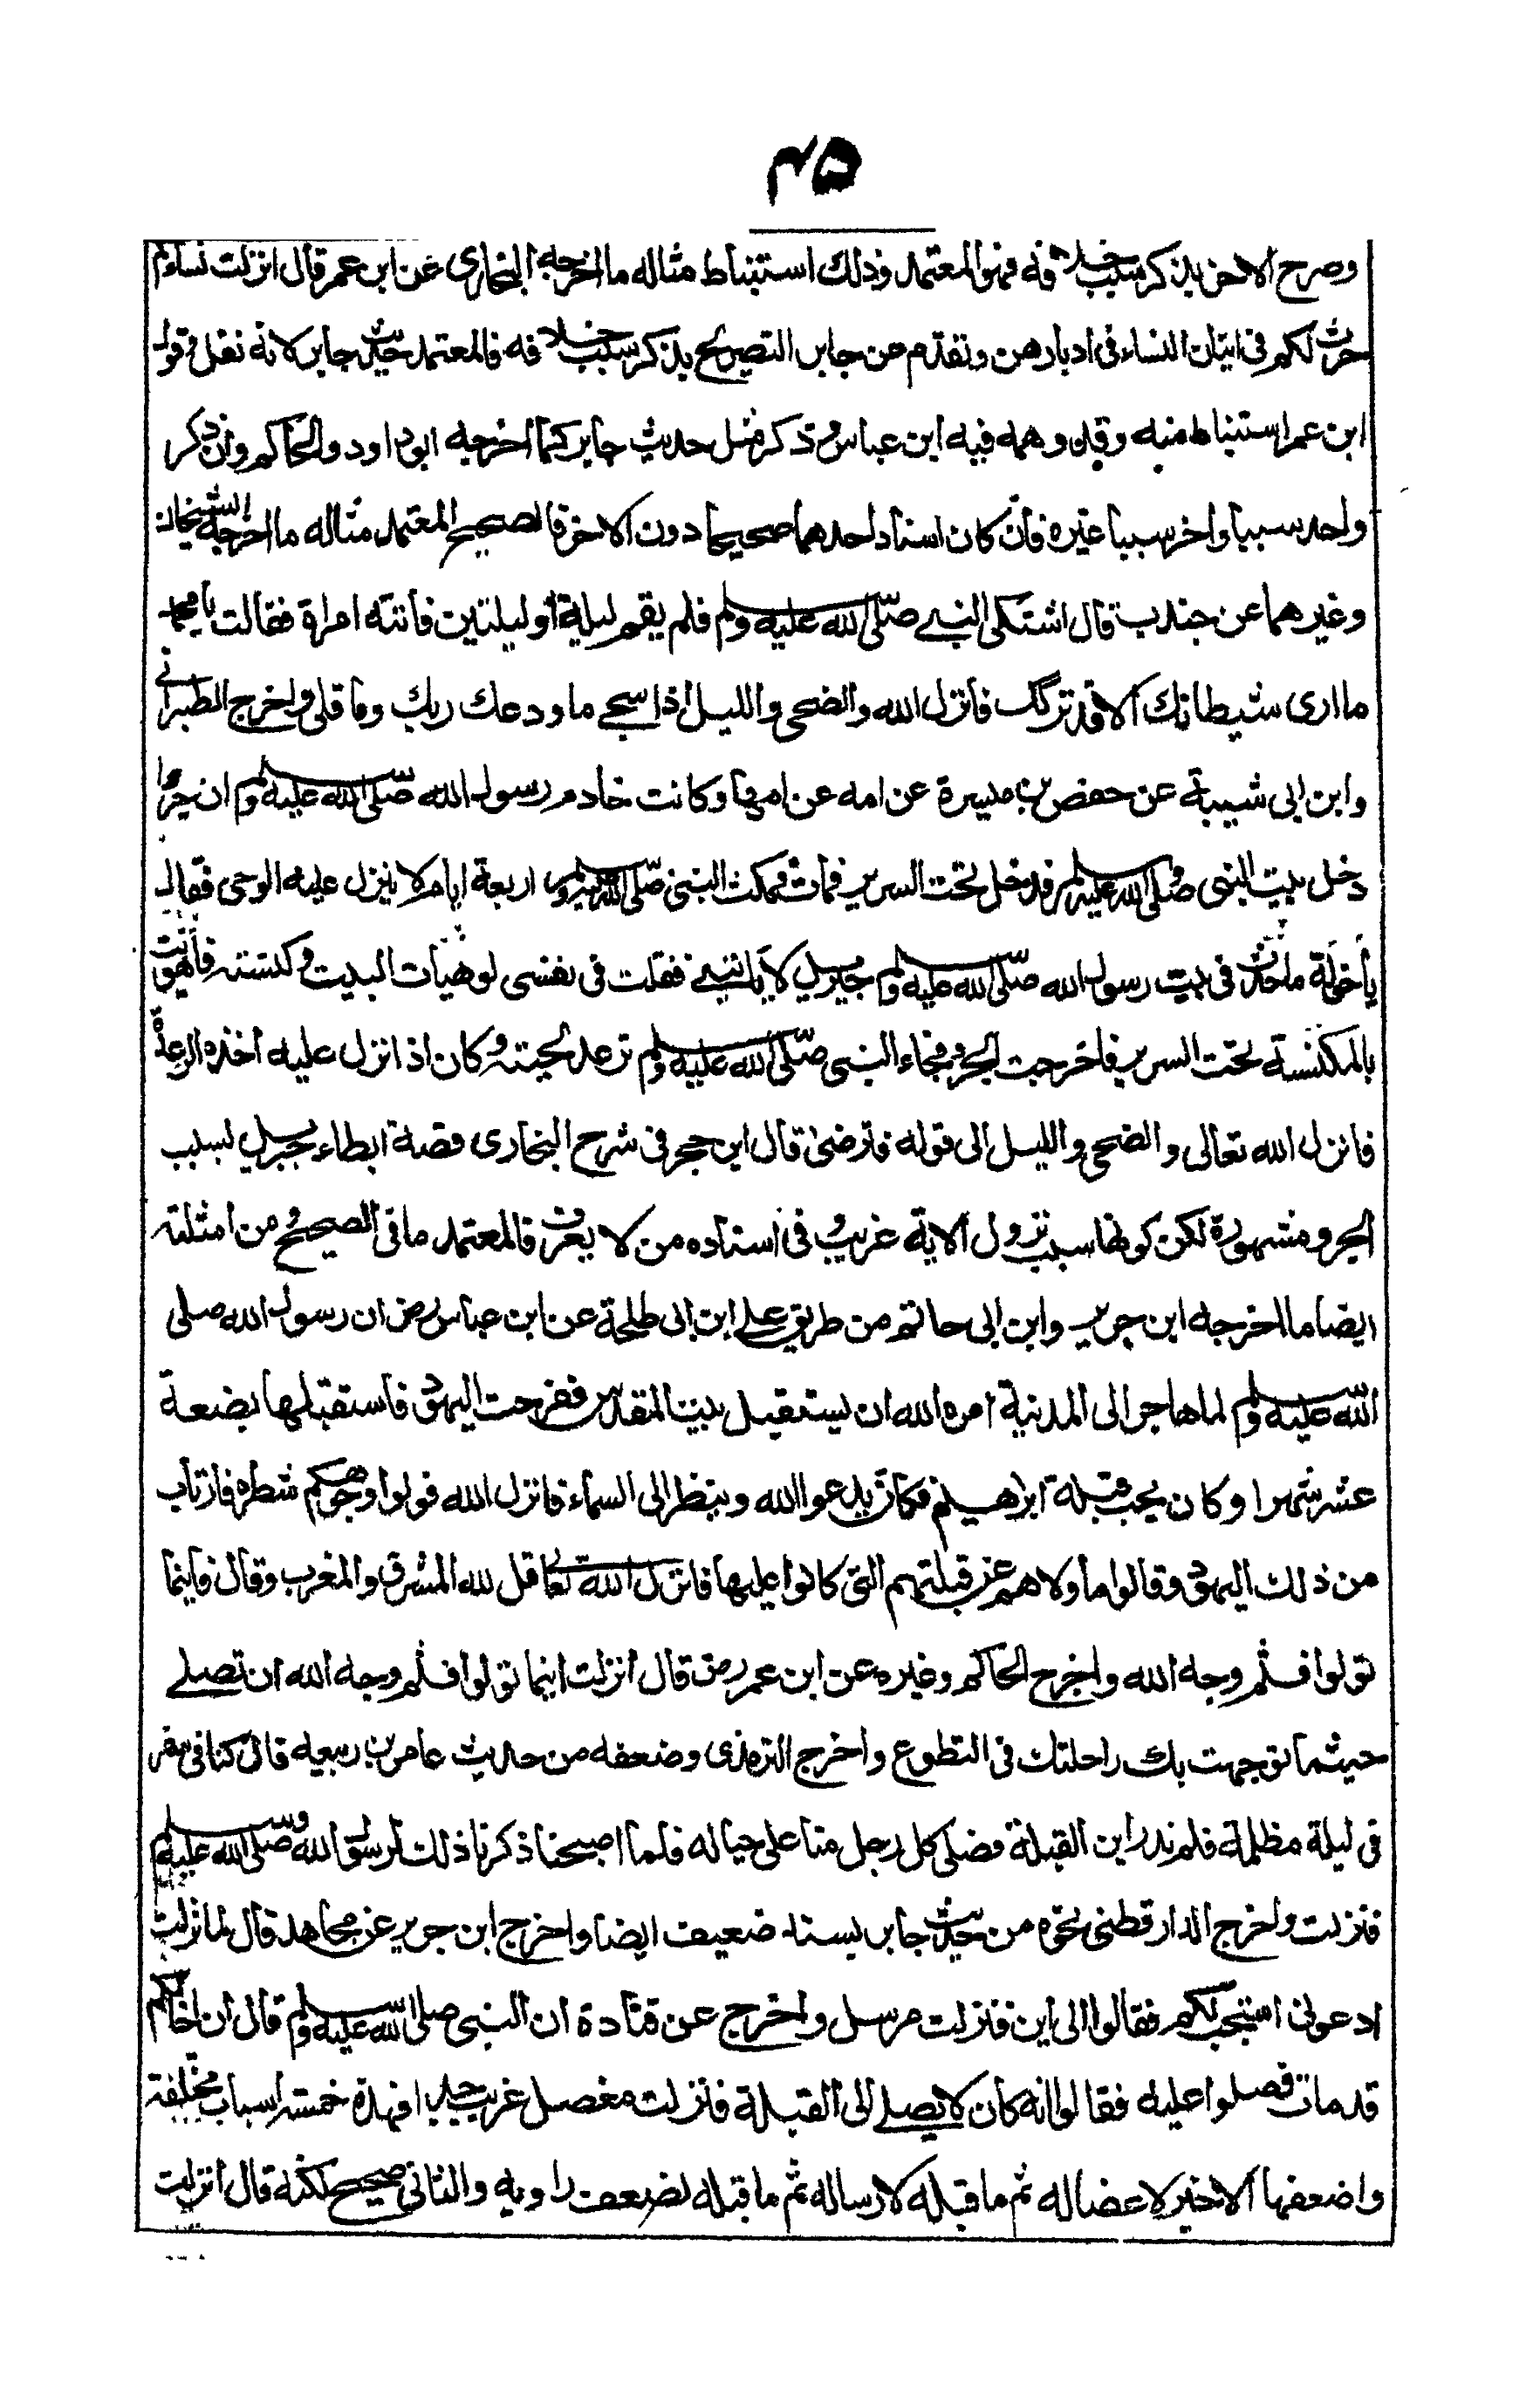 ۴۵
وصرح الاخر بذكر سبب خلافه فهو المعتمد وذلك استنباط مثاله ما اخرجه البخاري عن ابن عمر قال انزلت نساؤكم
حرث لكم في اتيان النساء في ادبارهن وتقدم عن جابر التصريح بذكر سبب خلافه فالمعتمد حديث جابر لانه نقل وقول
ابن عمر استنباط منه وقد وهمه فيه ابن عباس وذكر مثل حديث جابر كما اخرجه ابوداود والحاكم وان ذكر
واحد سببا واخر سببا غيره فان كان اسناد احدهما صحيحا دون الاخر فالصحيح المعتمد مثاله ما اخرجه الشيخان
وغيرهما عن جندب قال اشتكى النبي صلى الله عليه وسلم فلم يقم ليلة او ليلتين فأتته امراة فقالت يا محمد
ما ارى شيطانك الا قد تركك فأنزل الله والضحى والليل اذا سجى ما ودعك ربك وما قلى واخرج الطبراني
وابن ابي شيبة عن حفص بن ميسرة عن امه عن امها وكانت خادم رسول الله صلى الله عليه وسلم ان جروا
دخل بيت النبي صلى الله عليه وسلم فدخل تحت السرير فمات فمكث النبي صلى الله عليه وسلم اربعة ايام لا ينزل عليه الوحي فقال
يا خولة ما حدث في بيت رسول الله صلى الله عليه وسلم جبريل لا يأتيني فقلت في نفسي لو هيأت البيت وكنسته فأهويت
بالمكنسة تحت السرير فاخرجت الجرو فجاء النبي صلى الله عليه وسلم ترعد لحيته وكان اذا نزل عليه اخذه الرعدة
فانزل الله تعالى والضحى والليل الى قوله فترضى قال ابن حجر في شرح البخاري قصة ابطاء جبريل بسبب
الجرو مشهورة لكن كونها سبب نزول الاية غريب وفي اسناده من لا يعرف فالمعتمد ما في الصحيح ومن امثلته
ايضا ما اخرجه ابن جرير وابن ابي حاتم من طريق علي ابن ابي طلحة عن ابن عباس رض ان رسول الله صلى
الله عليه وسلم لما هاجر الى المدينة امره الله ان يستقبل بيت المقدس ففرحت اليهود فاستقبلها بضعة
عشر شهرا وكان يحب قبلة ابراهيم فكان يدعو الله وينظر الى السماء فانزل الله فولوا وجوهكم شطره فارتاب
من ذلك اليهود وقالوا ما ولاهم عن قبلتهم التي كانوا عليها فانزل الله تعا قل لله المشرق والمغرب وقال فاينما
تولوا فثم وجه الله واخرج الحاكم وغيره عن ابن عمر رض قال انزلت اينما تولوا فثم وجه الله ان تصلي
حيثما توجهت بك راحلتك في التطوع واخرج الترمذي وضعفه من حديث عامر بن ربيعه قال كنا في سفر
في ليلة مظلمة فلم ندر اين القبلة فصلى كل رجل منا على حياله فلما اصبحنا ذكرنا ذلك لرسول الله صلى الله عليه وسلم
فنزلت واخرج الدارقطني نحوه من حديث جابر بسند ضعيف ايضا واخرج ابن جرير عن مجاهد قال لما نزلت
ادعوني استجب لكم فقالوا الى اين فنزلت مرسل واخرج عن قتادة ان النبي صلى الله عليه وسلم قال ان اخا لكم
قد مات فصلوا عليه فقالوا انه كان لا يصلي الى القبلة فنزلت معضل غريب جدا فهذه خمسة اسباب مختلفة
واضعفها الاخير لاعضاله ثم ما قبله لارساله ثم ما قبله لضعف راويه والثاني صحيح لكنه قال انزلت